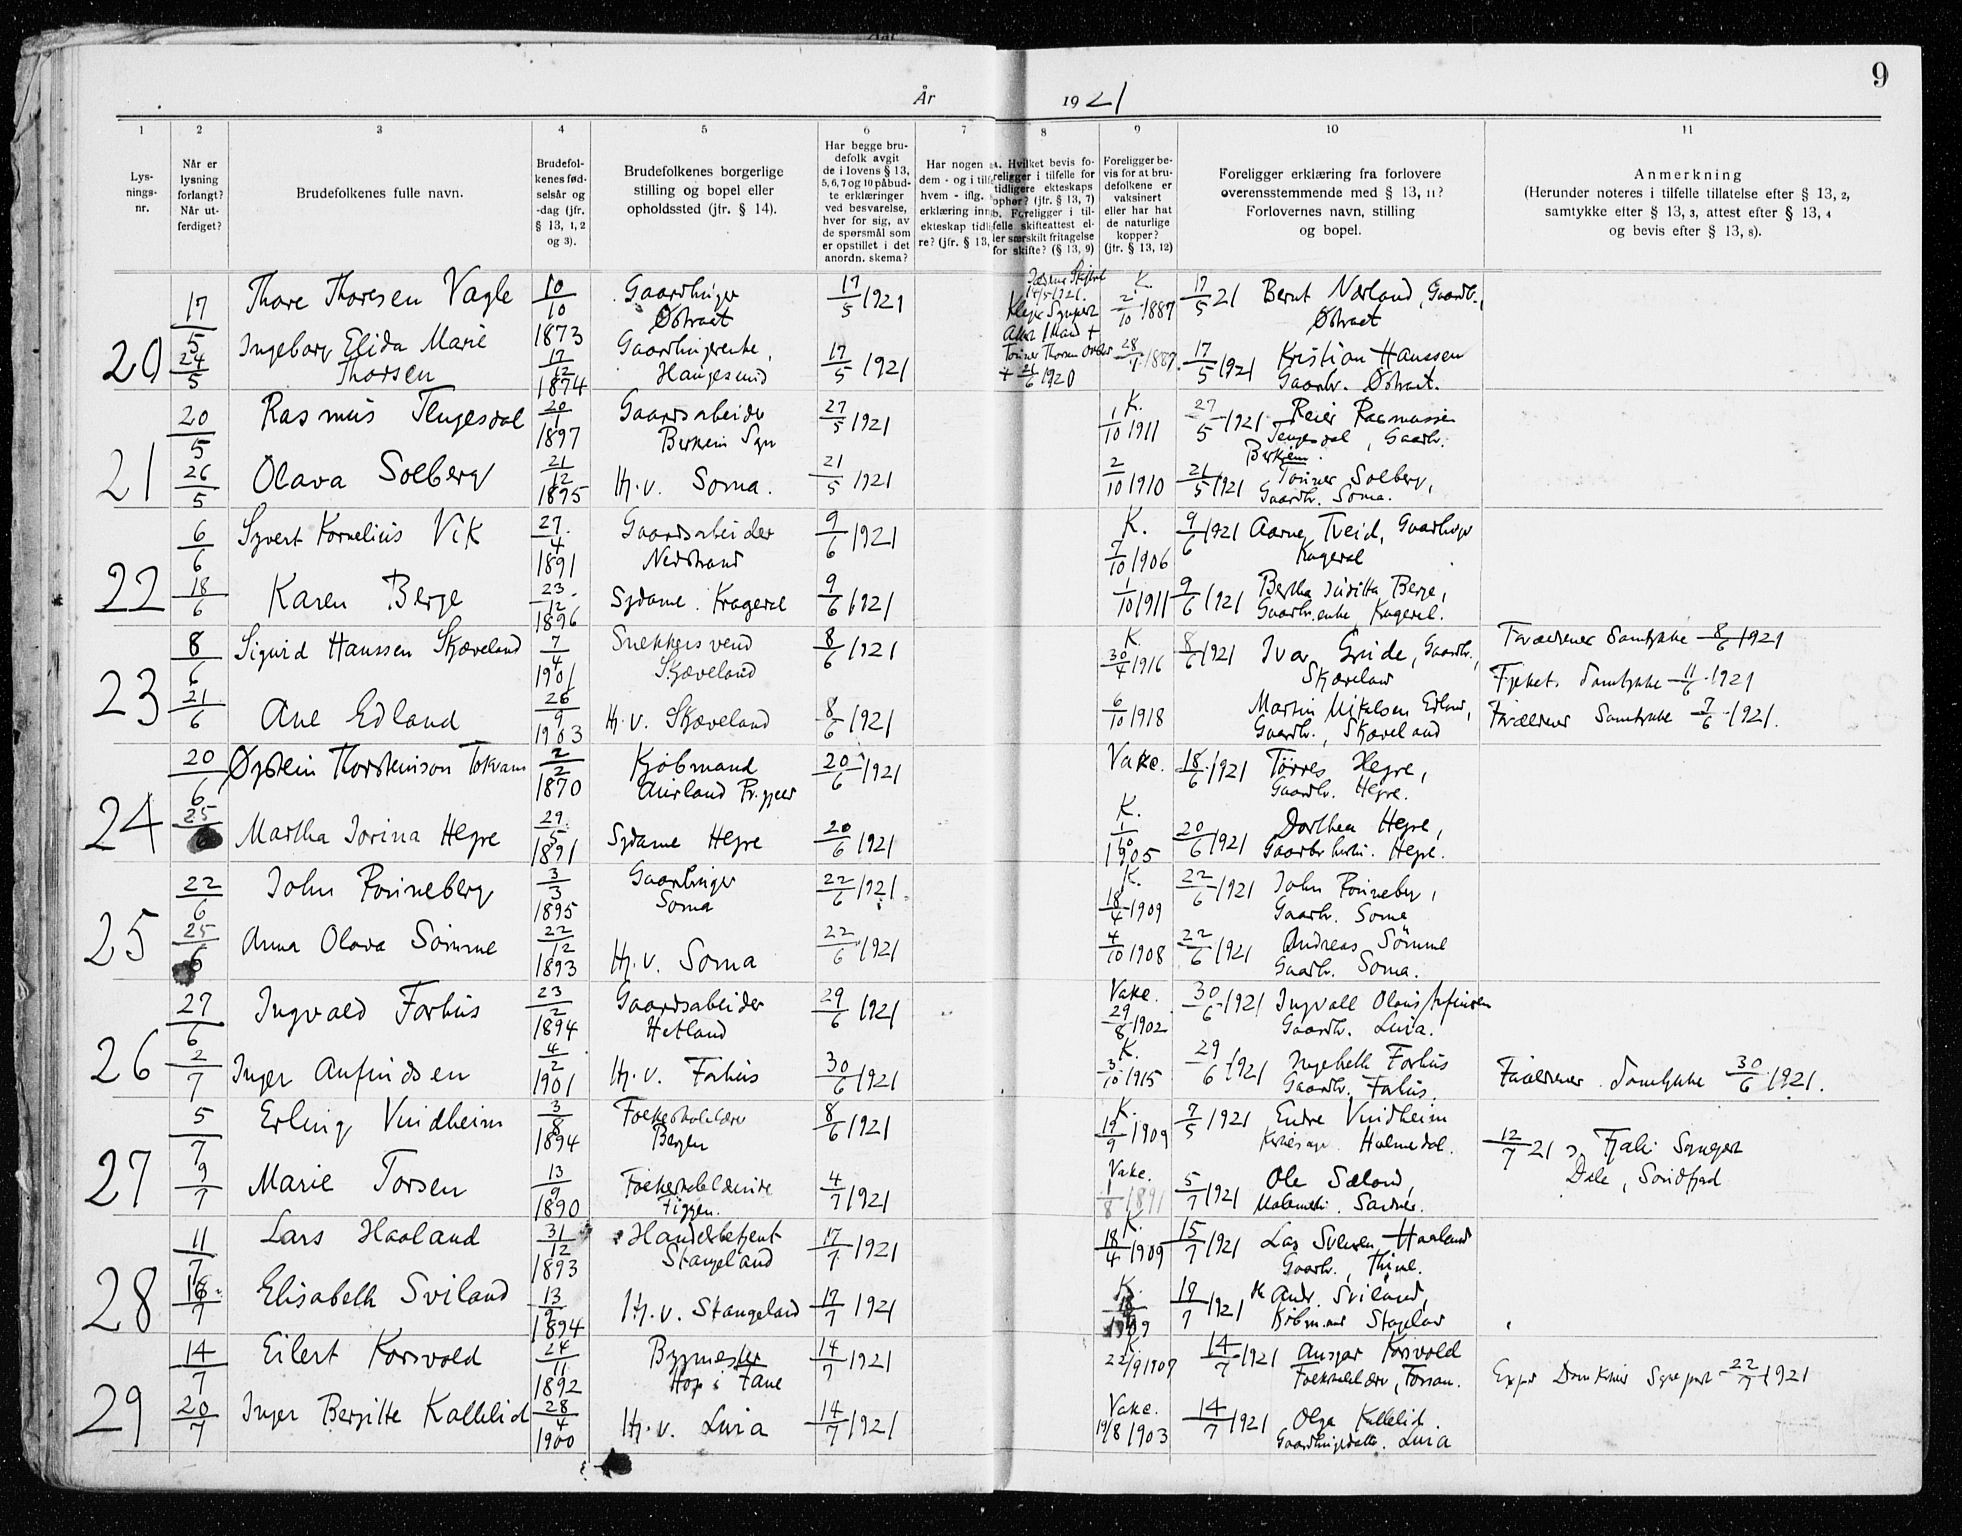 9
År 1921
1 2 3 4 5 6 7 8 9 10 11
Lys-
nings-
nr.
Når er
lysning
forlangt?
Når ut-
ferdiget?
Brudefolkenes fulle navn.
Brudefol-
kenes fød-
selsår og
-dag (jfr.
§ 13, 1, 2
og 3).
Brudefolkenes borgerlige
stilling og bopel eller
opholdssted (jfr. § 14).
Har begge bru-
defolk avgit
de i lovens § 13,
5, 6, 7 og 10 påbud-
te erklæringer
ved besvarelse,
hver for sig, av
de spørsmål som
er opstillet i det
anordn. skema?
Har nogen a
dem - og i tilf
hvem - iflg.
erklæring inn
ekteskap tidl
re? (jfr. § 13,
a. Hvilket bevis fo-
religger i tilfelle for
tidligere ekteskaps
ophør? (jfr. § 13, 7)
b. Foreligger i til-
felle skifteattest el-
ler særskilt fritagelse
for skifte? (§ 13, 9)
Foreligger be-
vis for at bru-
defolkene er
vaksinert
eller har hat
de naturlige
kopper?
(jfr. § 13, 12)
Foreligger erklæring fra forlovere
overensstemmende med § 13, 11?
Forlovernes navn, stilling
og bopel.
Anmerkning
(Herunder noteres i tilfelle tillatelse efter § 13, 2,
samtykke efter § 13, 3, attest efter § 13, 4
og bevis efter § 13, 8).
20
17/5 Thore Thoresen Vagle 10/10 1873 Gaardbruger 17/5 1921 K. 2/10 1887 17/5 21 Bernt Nærland, Gaardbr.,
Østraat Østraat
24/5 Ingeborg Elida Marie 17/12 1874 Gaardbrugerenke, 17/5 1921 + 21/6 1920 17/5 1921 Kristian Hanssen
Thorsen Haugesund Gaardbr. Østraat.
21
20/5 Rasmus Tengesdal 20/1 1897 Gaardsarbeider 27/5 1921 K. 1/10 1911 27/5 1921 Reier Rasmussen
Tengesdal, Gaardbr.
26/5 Olava Solberg 21/12 1895 Hj. v. Soma. 21/5 1921 2/10 1910 21/5 1921 Tønner Solberg,
Gaardbr. Soma.
22
6/6 Syvert Kornelius Vik 27/4 1891 Gaardsarbeider 9/6 1921 K. 7/10 1906 9/6 1921 Aarne Tveid, Gaardbruger
Nedstrand
18/6 Karen Berge 23/12 1896 Sydame. 9/6 1921 1/10 1911 9/6 1921 Bertha Juditta Berge,
Gaardbr.enke
23
8/6 Sigurd Hanssen Skjæveland 7/4 1901 Snekkersvend 8/6 1921 K. 30/4 1916 8/6 1921 Ivar Grude, Gaardbr., Forældrenes Samtykke 8/6 1921
Skjæveland Skjæveland Fylkets Samtykke 11/6 1921
21/6 Ane Edland 26/9 1903 Hj. v. Skjæveland 8/6 1921 6/10 1918 Martin Mikalsen Edland, Forældrenes Samtykke 7/6 1921.
Gaardbr., Skjæveland
24
20/6 Øystein Thorsteinson Tokvam 2/2 1870 Kjøbmand 20/6 1921 Vakc. 18/6 1921 Tørres Hegre,
Aurland Gaardbr. Hegre.
25/6 Martha Jorina Hegre 29/5 1891 Sydame Hegre 20/6 1921 K. 1/10 1905 20/6 1921 Dorthea Hegre,
Hegre.
25
22/6 John Rønneberg 3/3 1895 Gaardbruger 22/6 1921 K. 18/4 1909 22/6 1921 John Rønneberg,
Soma Gaardbr. Soma
25/6 Anna Olava Sømme 22/12 1893 Hj. v. Soma 22/6 1921 4/10 1908 22/6 1921 Andreas Sømme
Gaardbr. Soma.
26
27/6 Ingvald Forhus 23/2 1894 Gaardsarbeider 29/6 1921 Vakc. 29/8 1902 30/6 1921 Ingvald Olaus Anfinsen
Hetland Gaardbr. Lura.
2/7 Inger Anfindsen 4/2 1901 Hj. v. Forhus 30/6 1921 K. 3/10 1915 29/6 1921 Ingebeth Forhus Forældrenes Samtykke 30/6 1921.
Gaardbr. Forhus
27
5/7 Erling Vindheim 3/8 1894 Folkeskolelærer 8/6 1921 K. 19/9 1909 7/5 1921 Endre Vindheim 12/7 21 Fjaler Sognepr.
Bergen Holmedal. Dale, Søndfjord
9/7 Marie Torsen 13/9 1890 Folkeskolelærerinde 4/7 1921 Vakc. 1/8 1891 5/7 1921 Ole Sæland,
Figgen. Malermester. Sandnes.
28
11/7 Lars Haaland 31/12 1893 Handelsbetjent 17/7 1921 K. 18/4 1909 15/7 1921 Lars Svensen Haaland
Stangeland Gaardbr., Thime.
18/7 Elisabeth Sviland 13/9 1894 Hj. v. Stangeland 17/7 1921 K. 1909 17/7 1921 Andr. Sviland,
29
14/7 Eilert Korsvold 24/11 1892 Bygmester 14/7 1921 K. 22/9 1907 14/7 1921 Ansgar Korsvold
Hop i Fane Folkeskolelærer, Domkirkens Sognepr. 22/7 1921
20/7 Inger Bergitte Kallelid 28/4 1900 Hj. v. Lura 14/7 1921 Vakc. 19/8 1903 14/7 1921 Olga Kallelid.
Gaardbrugerdatter. Lura